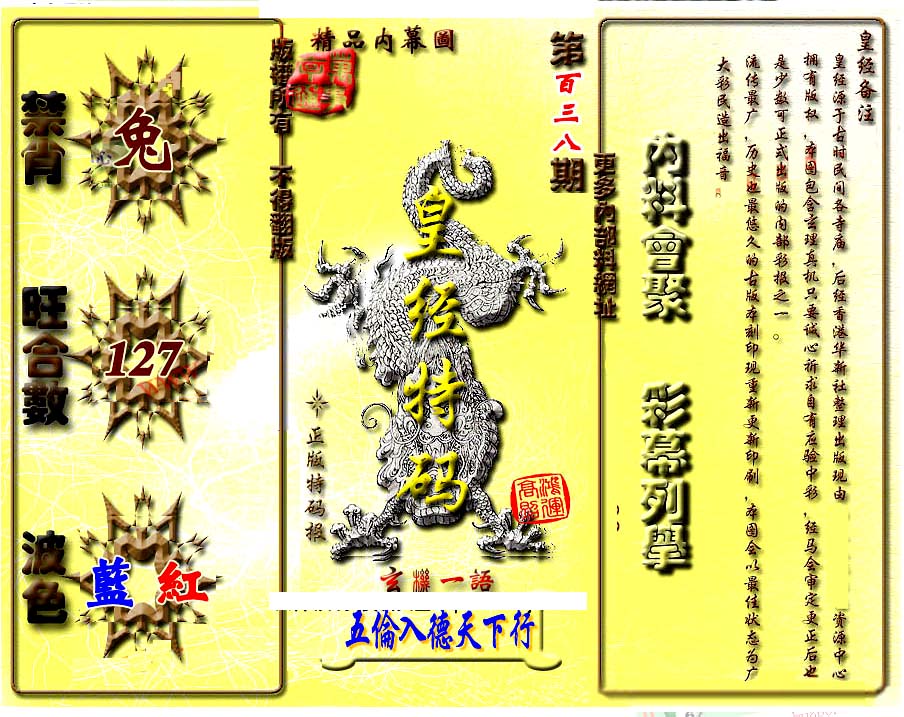 皇经备注
皇经源于古时民间各寺庙，后经香港华新社整理出版现由
资源中心
拥有版权，本图包含玄理真机只要诚心祈求自有应验中彩，经马会审定更正后也
是少数可正式出版的内部彩报之一。
流传最广，历史也最悠久的古版本刻印现重新更新印刷，本图会以最佳状态为广
大彩民造出福音
內料會聚
彩幕列舉
更多內部料網址
第百三八期
精品内幕圖
版權所有 不得翻版
皇经特码
正版特码报
鴻運高照
玄機一語
五倫入德天下行
禁肖
兔
旺合數
127
波色
藍 紅